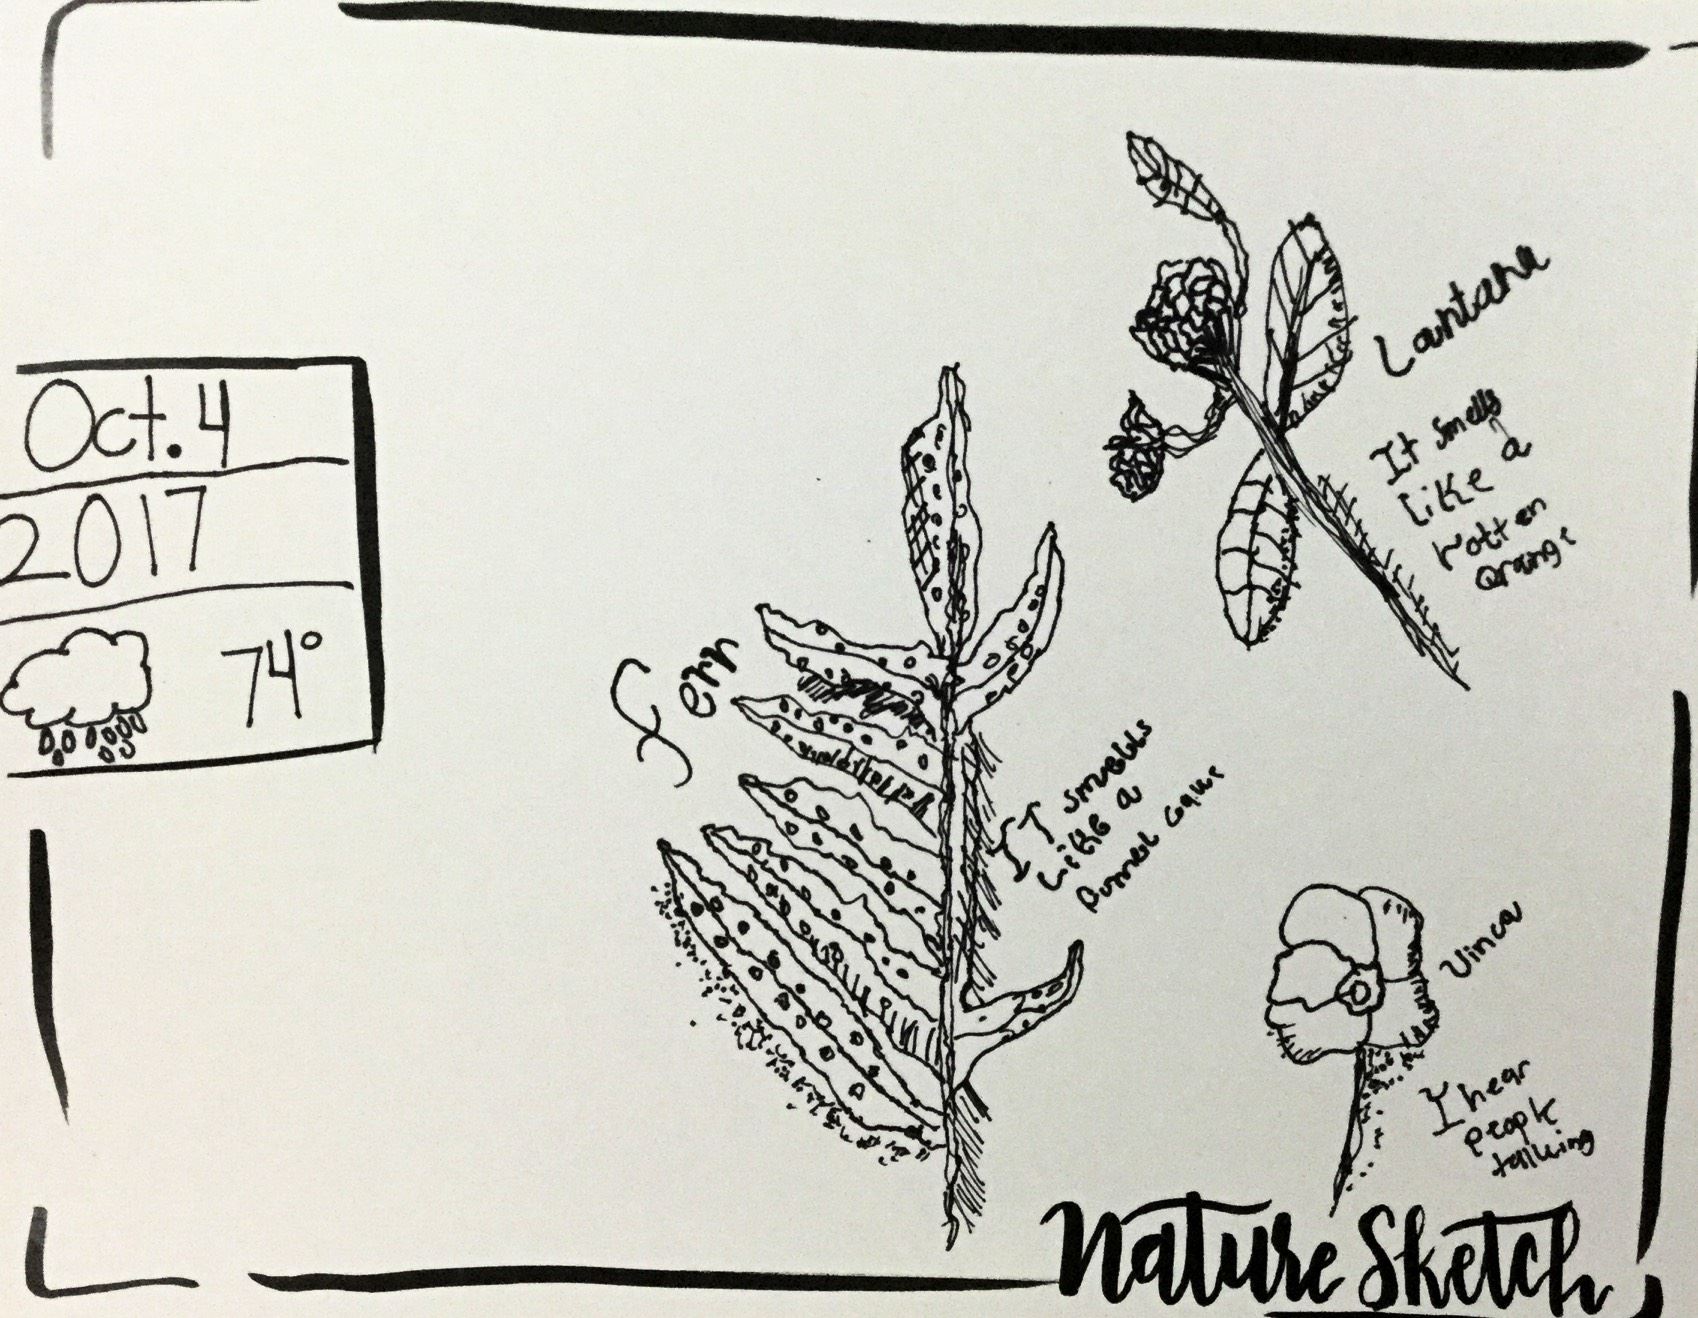 Oct. 4
2017
74°
Lantana
It smells
like a
rotten
orange
fern
IT smells
like a
Vinca
I hear
people
talking
Nature Sketch